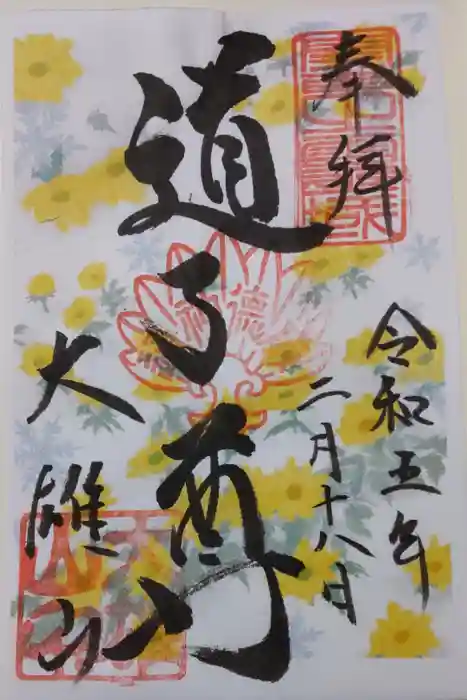 奉拝
令和五年
二月十八日
道了尊
大雄山